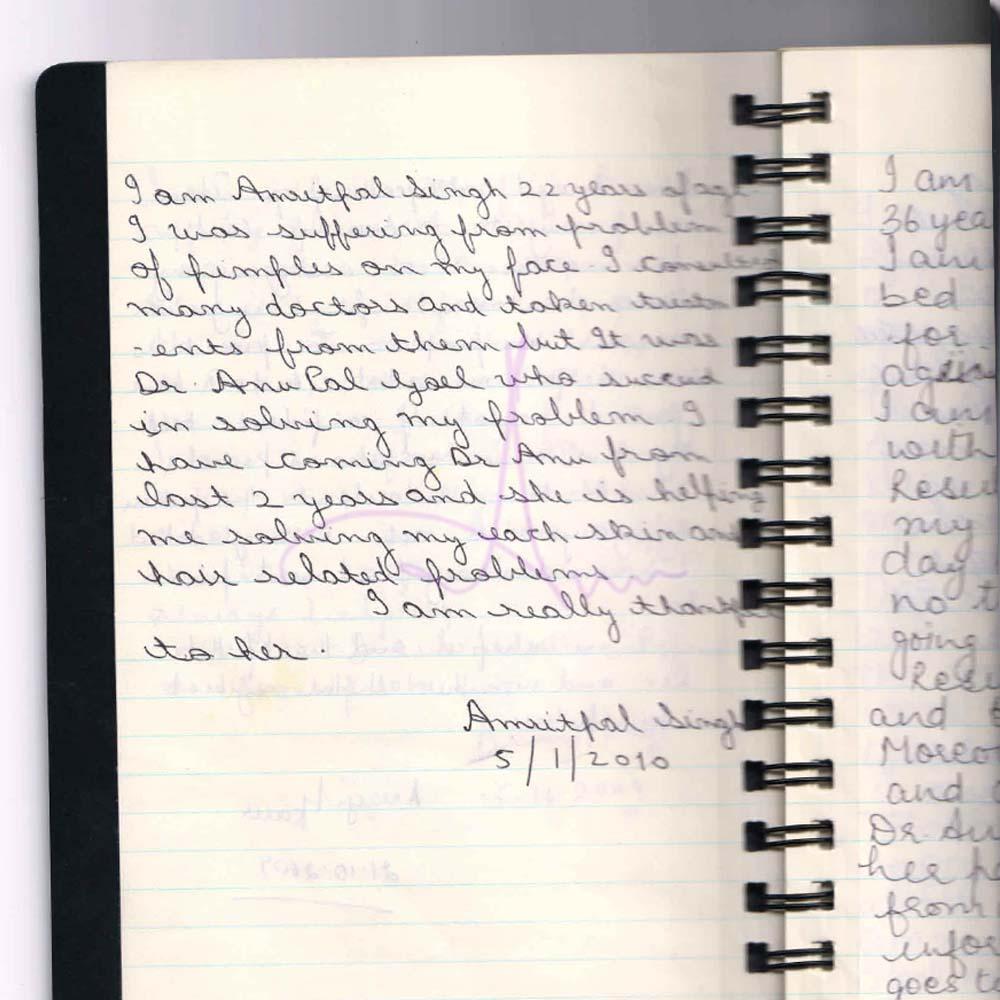 I am Amritpal Singh 22 years of age
I was suffering from problem
of pimples on my face. I consulted
many doctors and taken treatm
-ents from them but It was
Dr. Anu Pal Goel who succeed
in solving my problem I
have coming Dr Anu from
last 2 years and she is helping
me solving my each skin and
hair related problems
I am really thankful
to her.
Amritpal Singh
5/1/2010
I am
36 yea
I am
bed
for
again
I am
with
Resu
my
day
no t
going
Resu
and
Moreo
and
Dr. Anu
her pe
from
infor
goes to